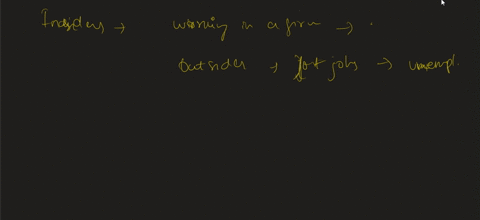 Insiders → working in a firm →
Outsider → lost jobs → unempl.